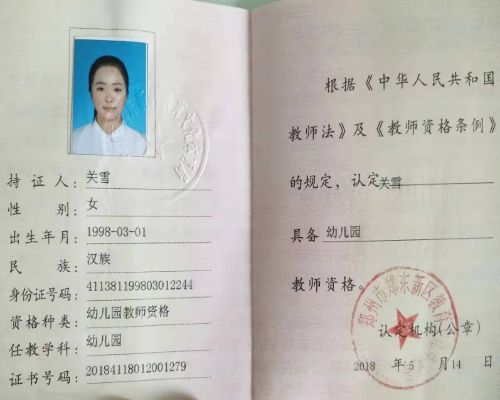 持证人：关雪
性别：女
出生年月：1998-03-01
民族：汉族
身份证号码：411381199803012244
资格种类：幼儿园教师资格
任教学科：幼儿园
证书号码：20184118012001279
根据《中华人民共和国
教师法》及《教师资格条例》
的规定，认定关雪
具备幼儿园
教师资格。
郑州市郑东新区教育
认定机构(公章)
2018年5月14日